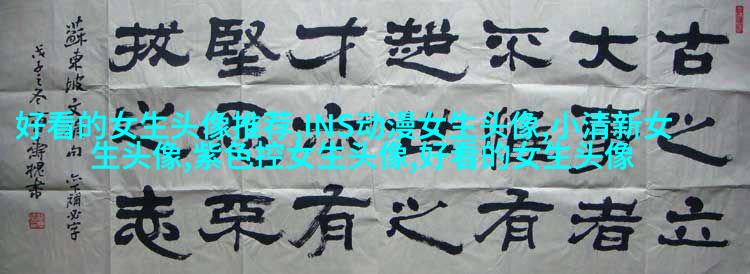 古之立
大事者
不惟有
超世之
才亦有
堅忍不
拔之志
蘇東坡文摘句 漏必字
戊子之冬 書
好看的女生头像推荐,INS动漫女生头像,小清新女
生头像,紫色控女生头像,好看的女生头像